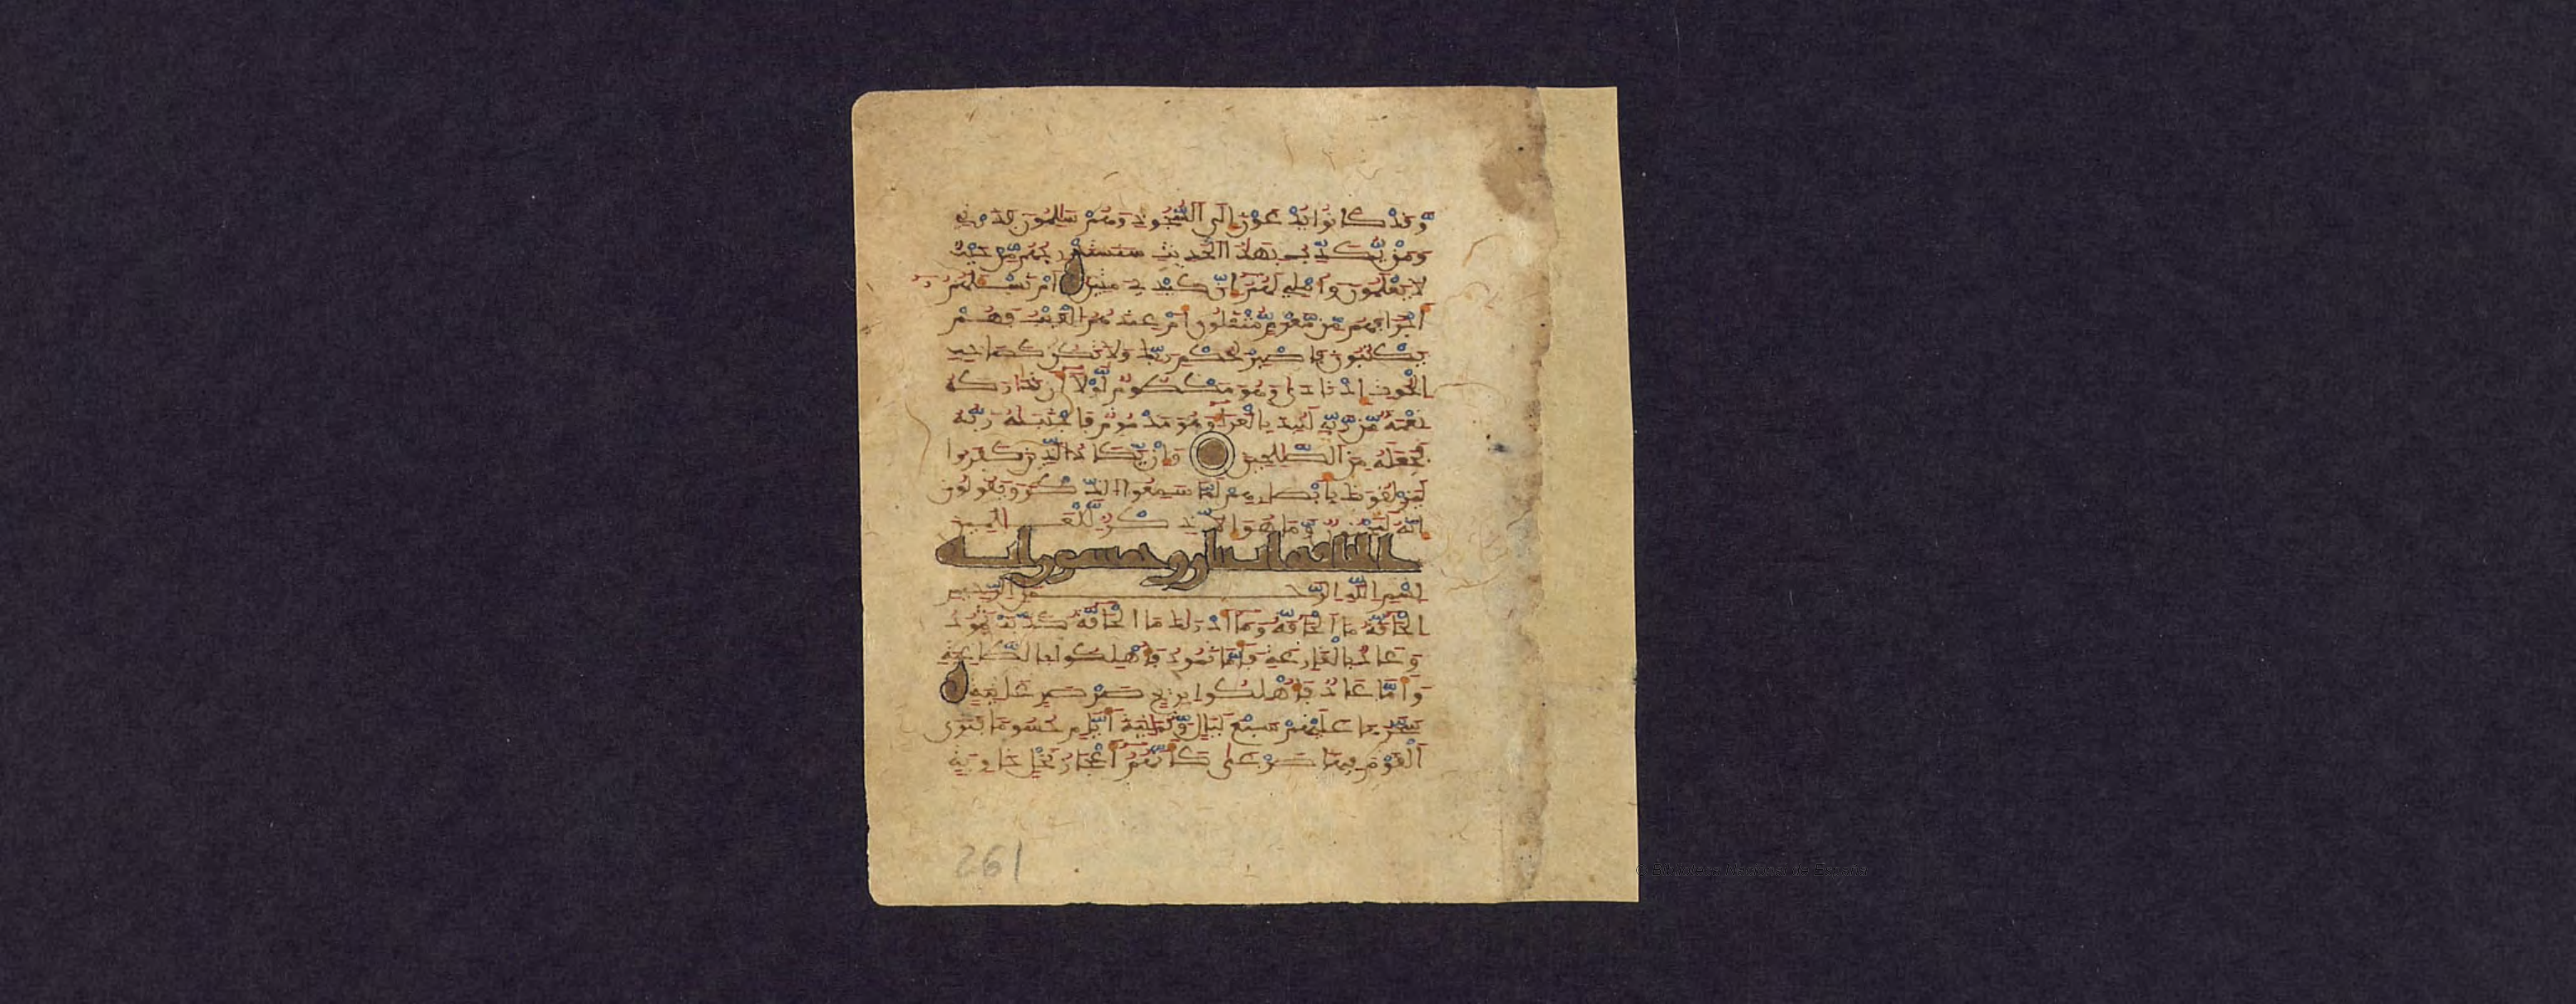 وَقَدْ كَانُوا يُدْعَوْنَ إِلَى ٱلسُّجُودِ وَهُمْ سَٰلِمُونَ فَذَرْنِي
وَمَنْ يُّكَذِّبُ بِهَٰذَا ٱلْحَدِيثِ سَنَسْتَدْرِجُهُم مِّنْ حَيْثُ
لَا يَعْلَمُونَ وَأُمْلِي لَهُمْ إِنَّ كَيْدِي مَتِينٌ أَمْ تَسْـَٔلُهُمْ
أَجْرًا فَهُم مِّن مَّغْرَمٍ مُّثْقَلُونَ أَمْ عِندَهُمُ ٱلْغَيْبُ فَهُمْ
يَكْتُبُونَ فَٱصْبِرْ لِحُكْمِ رَبِّكَ وَلَا تَكُن كَصَاحِبِ
ٱلْحُوتِ إِذْ نَادَىٰ وَهُوَ مَكْظُومٌ لَّوْلَا أَن تَدَٰرَكَهُ
نِعْمَةٌ مِّن رَّبِّهِ لَنُبِذَ بِٱلْعَرَاءِ وَهُوَ مَذْمُومٌ فَٱجْتَبَٰهُ رَبُّهُ
فَجَعَلَهُ مِنَ ٱلصَّٰلِحِينَ وَإِنْ يَّكَادُ ٱلَّذِينَ كَفَرُوا
لَيَزْلِقُونَكَ بِأَبْصَٰرِهِمْ لَمَّا سَمِعُوا ٱلذِّكْرَ وَيَقُولُونَ
إِنَّهُ لَمَجْنُونٌ وَمَا هُوَ إِلَّا ذِكْرٌ لِّلْعَٰلَمِينَ
الحاقة اثنان وخمسون اية
بِسْمِ ٱللَّهِ ٱلرَّحْمَٰنِ ٱلرَّحِيمِ
ٱلْحَاقَّةُ مَا ٱلْحَاقَّةُ وَمَا أَدْرَىٰكَ مَا ٱلْحَاقَّةُ كَذَّبَتْ ثَمُودُ
وَعَادٌ بِٱلْقَارِعَةِ فَأَمَّا ثَمُودُ فَأُهْلِكُوا بِٱلطَّاغِيَةِ
وَأَمَّا عَادٌ فَأُهْلِكُوا بِرِيحٍ صَرْصَرٍ عَاتِيَةٍ
سَخَّرَهَا عَلَيْهِمْ سَبْعَ لَيَالٍ وَثَمَٰنِيَةَ أَيَّامٍ حُسُومًا فَتَرَى
ٱلْقَوْمَ فِيهَا صَرْعَىٰ كَأَنَّهُمْ أَعْجَازُ نَخْلٍ خَاوِيَةٍ
261
© Biblioteca Nacional de España